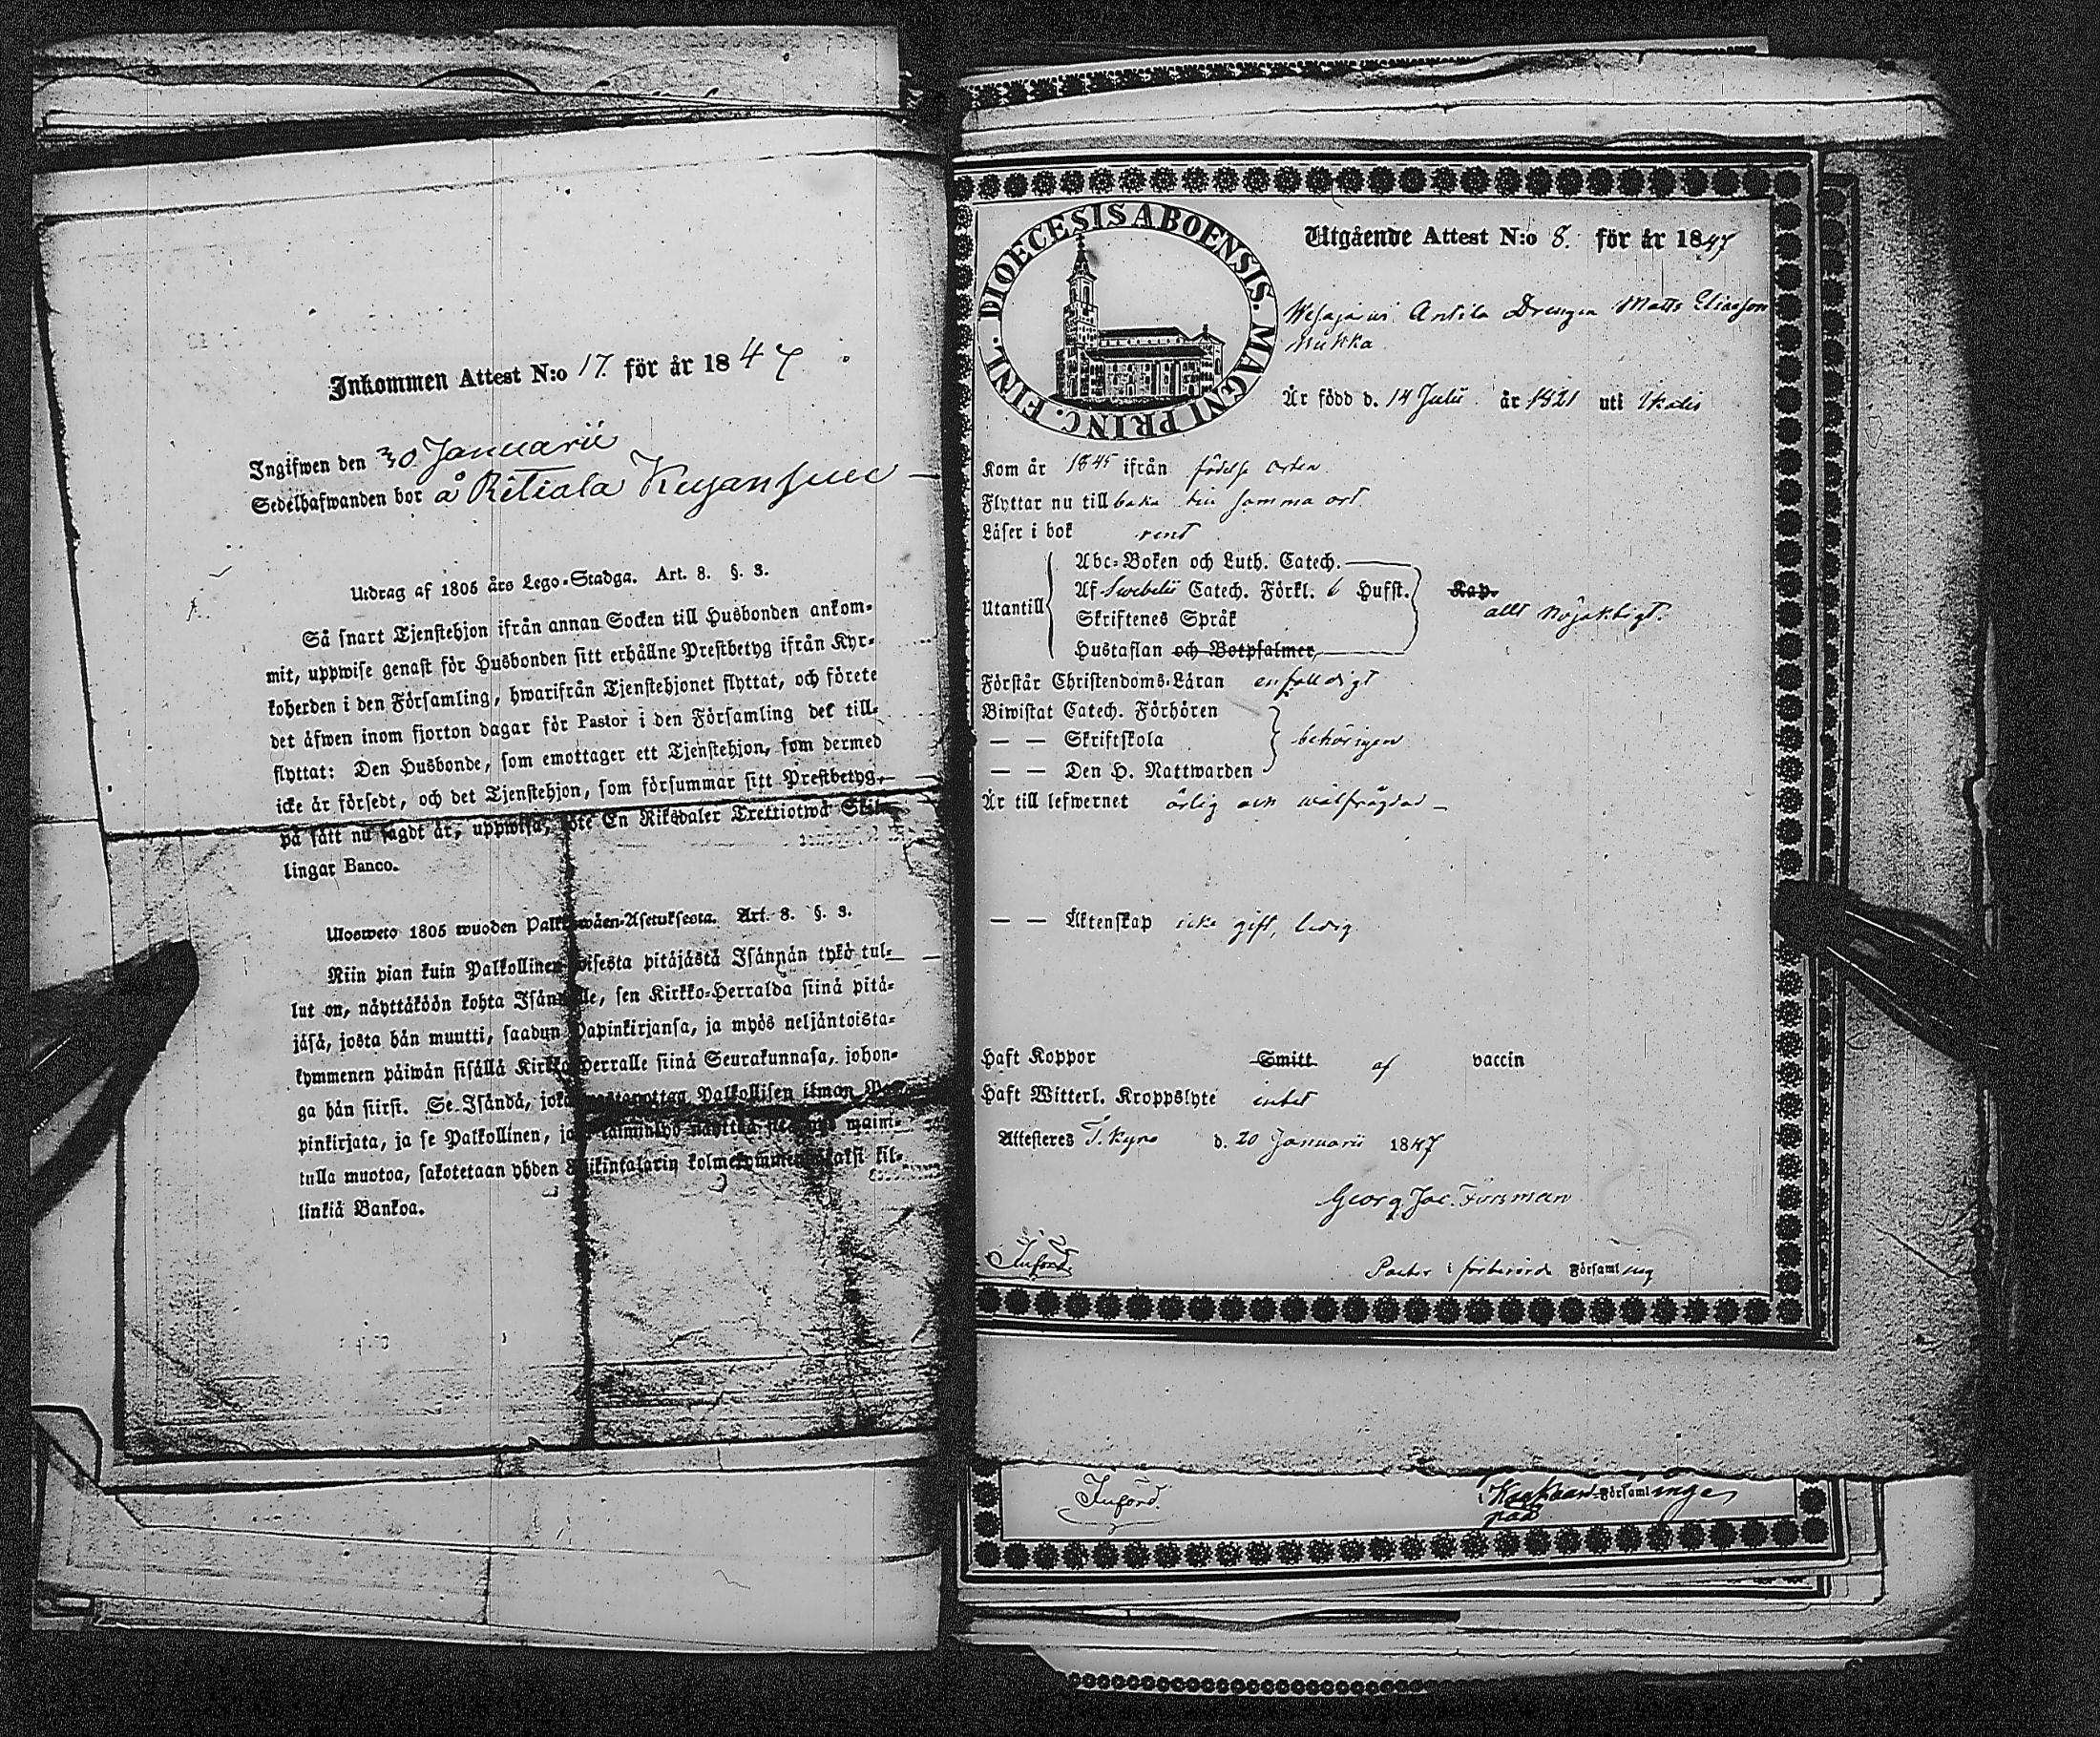 Inkommen Attest N:o 17. för år 1847.
Ingifwen den 30 Januarii
Sedelhafwanden bor å Ritiala Kujansuu
Utdrag af 1805 års Lego-Stadga. Art. 8. §. 3.
Så snart Tjenstehjon ifrån annan Socken till Husbonden ankom-
mit, uppwise genast för Husbonden sitt erhållne Prestbetyg ifrån Kyr-
koherden i den Församling, hwarifrån Tjenstehjonet flyttat, och förete
det äfwen inom fjorton dagar för Pastor i den Församling det till-
flyttat: Den Husbonde, som emottager ett Tjenstehjon, som dermed
icke är försedt, och det Tjenstehjon, som försummar sitt Prestbetyg,
på sätt nu sagdt är, uppwisa, böte En Riksdaler Trettiotwå Skil-
lingar Banco.
Ulosweto 1805 wuoden Palkkawäen-Asetuksesta. Art. 8. §. 3.
Niin pian kuin Palkollinen toisesta pitäjästä Isännän tykö tul-
lut on, näyttäköön kohta Isännälle, sen Kirkko-Herralda siinä pitä-
jäsä, josta hän muutti, saadun Papinkirjansa, ja myös neljäntoista-
kymmenen päiwän sisällä Kirkko-Herralle siinä Seurakunnasa, johon-
ga hän siirsi. Se Isändä, joka wastaanottaa Palkollisen ilman Pa-
pinkirjata, ja se Palkollinen, joka maim-
tulla muotoa, sakotetaan yhden Riikintalarin kolmekymmentäkaksi kil-
linkiä Bankoa.
DIOECESIS ABOENSIS. MAGNI PRINC. FINL.
Utgående Attest N:o 8. för år 1847
Wesajärwi Antila Drengen Matts Eliasson
Mukka
Är född d. 14 Julii år 1821 uti Ikalis
Kom år 1845 ifrån födelse orten
Flyttar nu till baka till samma ort.
Läser i bok rent
Abc-Boken och Luth. Catech.
Utantill Af Swebelii Catech. Förkl. 6 Hufst. Kap.
allt nöjaktigt.
Skriftenes Språk
Hustaflan och Botpsalmer,
Förstår Christendoms-Läran enfalldigt
Biwistat Catech. Förhören
— — Skriftskola behörigen
— — Den H. Nattwarden
Är till lefwernet ärlig och wälfrägdad
— — Äktenskap icke gift, ledig
Haft Koppor Smitt af vaccin
Haft Witterl. Kroppslyte intet
Attesteres T. Kyro d. 20 Januarii 1847
Georg Jac. Forsman
Införd.
Pastor i förberörde Församling
Införd.
i Församlingen